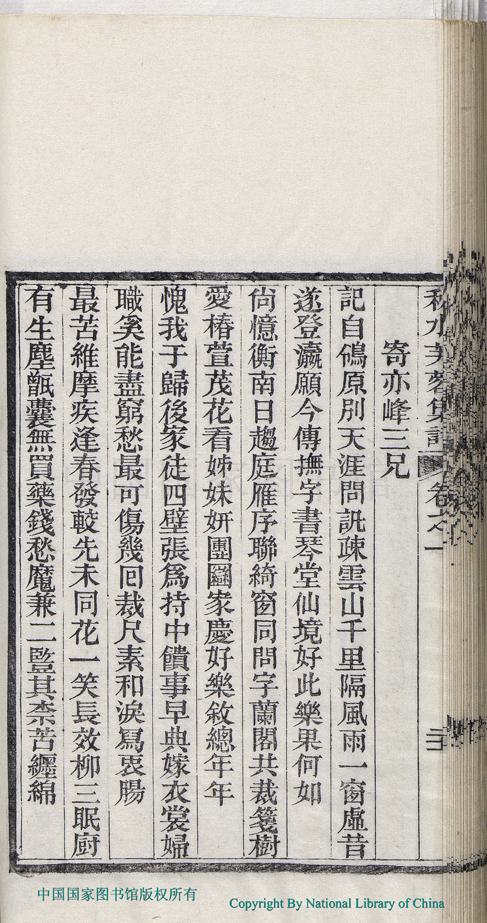 秋水芙蓉集詩 卷之一
寄亦峰三兄
記自鴒原別天涯問訊疎雲山千里隔風雨一窗虛昔
遂登瀛願今傳撫字書琴堂仙境好此樂果何如
尙憶衡南日趨庭雁序聯綺窗同問字蘭閣共裁箋樹
愛椿萱茂花看姊妹妍團圞家慶好樂敘總年年
愧我于歸後家徒四壁張爲持中饋事早典嫁衣裳婦
職奚能盡窮愁最可傷幾回裁尺素和淚寫衷腸
最苦維摩疾逢春發較先未同花一笑長效柳三眠厨
有生塵甑囊無買藥錢愁魔兼二豎其柰苦纒綿
中国国家图书馆版权所有
Copyright By National Library of China